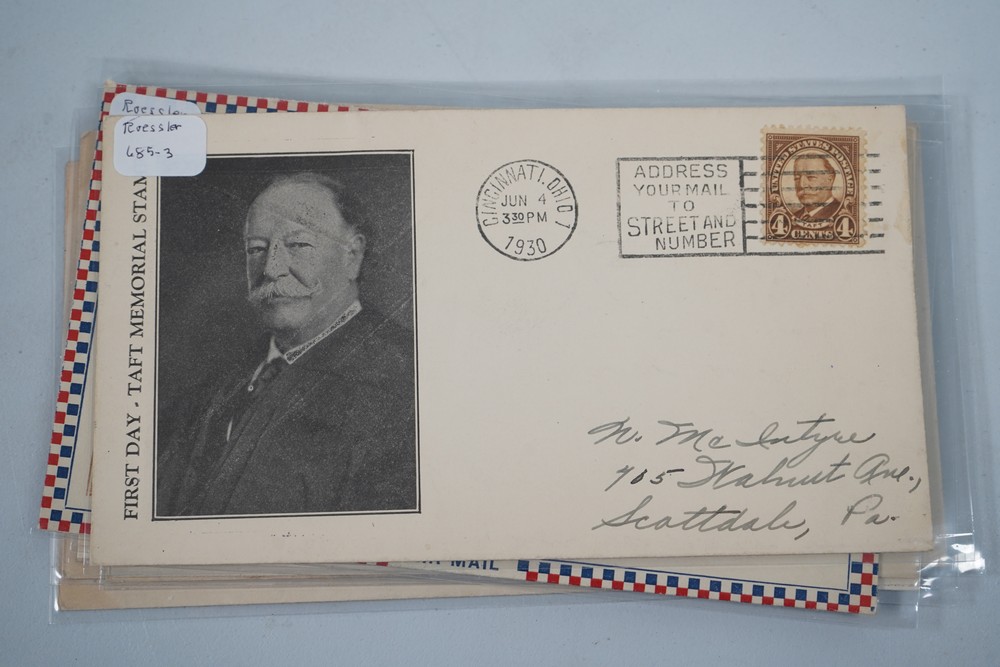 Roessler
Roessler
685-3
FIRST DAY - TAFT MEMORIAL STAM
CINCINNATI, OHIO 1
JUN 4
3 30 PM
1930
ADDRESS
YOUR MAIL
TO
STREET AND
NUMBER
UNITED STATES POSTAGE
TAFT
4 CENTS 4
N. Mc Intyre
705 Walnut Ave.,
Scottdale, Pa.
MAIL